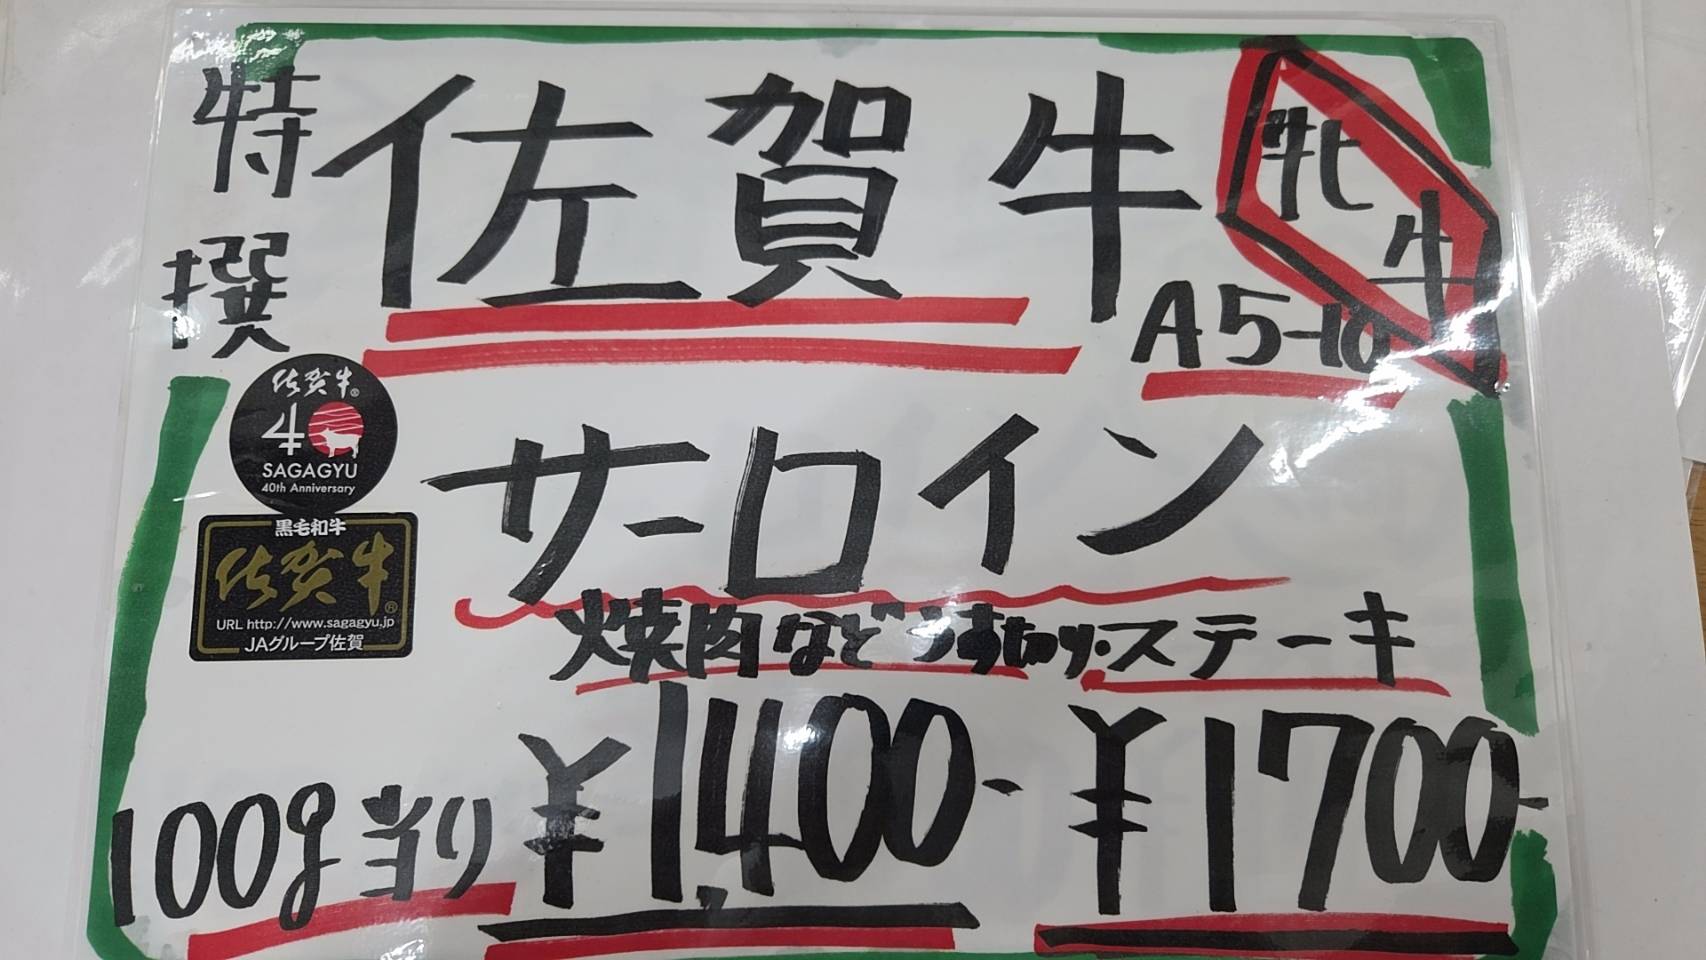 特撰
佐賀牛
牝牛
A5-10
佐賀牛®
40
SAGAGYU
40th Anniversary
黒毛和牛
佐賀牛®
URL http://www.sagagyu.jp
JAグループ佐賀
サーロイン
焼肉などうす切り・ステーキ
100g当り ¥1,400- ¥1700-